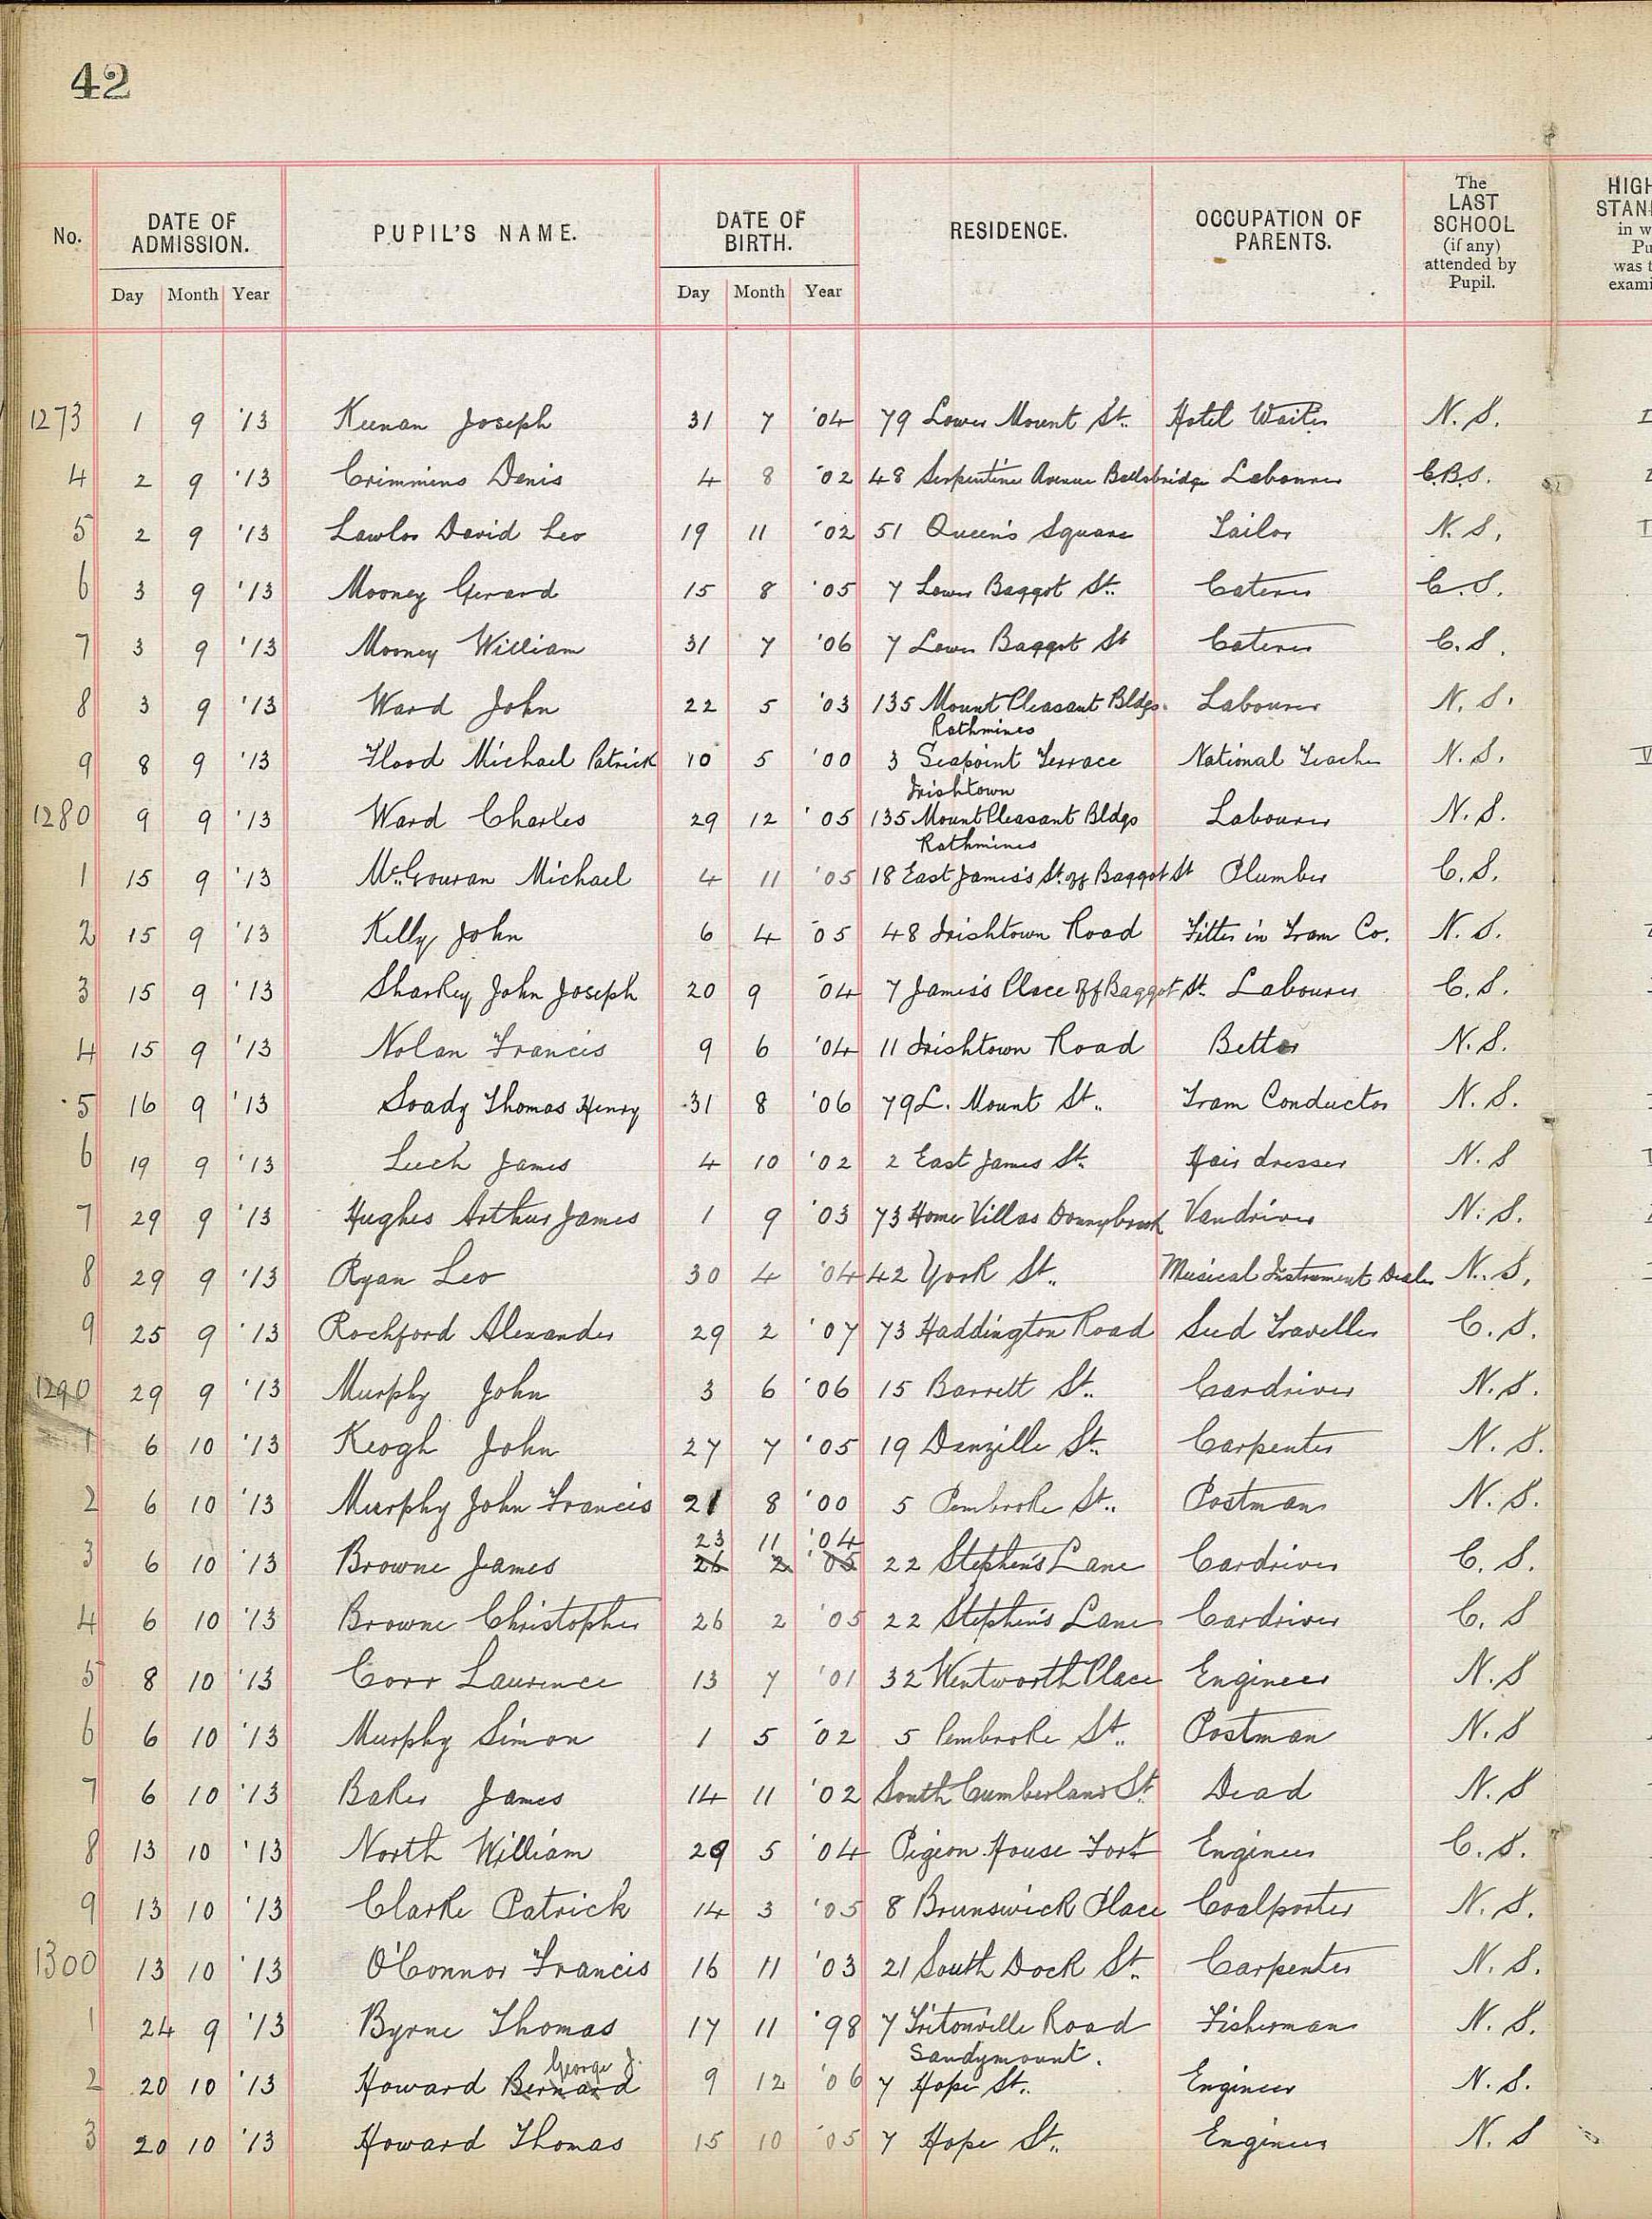 42
No. DATE OF ADMISSION. PUPIL'S NAME. DATE OF BIRTH. RESIDENCE. OCCUPATION OF PARENTS. The LAST SCHOOL (if any) attended by Pupil.
Day Month Year Day Month Year
1273 1 9 '13 Keenan Joseph 31 7 '04 79 Lower Mount St. Hotel Waiter N. S.
4 2 9 '13 Crimmins Denis 4 8 '02 48 Serpentine Avenue Ballsbridge Labourer C.B.S.
5 2 9 '13 Lawlor David Leo 19 11 '02 51 Queen's Square Tailor N. S.
6 3 9 '13 Mooney Gerard 15 8 '05 7 Lower Baggot St. Caterer C. S.
7 3 9 '13 Mooney William 31 7 '06 7 Lower Baggot St Caterer C. S.
8 3 9 '13 Ward John 22 5 '03 135 Mount Pleasant Bldgs. Labourer N. S.
Rathmines
9 8 9 '13 Flood Michael Patrick 10 5 '00 3 Seapoint Terrace National Teacher N. S.
Irishtown
1280 9 9 '13 Ward Charles 29 12 '05 135 Mount Pleasant Bldgs Labourer N. S.
Rathmines
1 15 9 '13 McGouran Michael 4 11 '05 18 East James's St. off Baggot St Plumber C. S.
2 15 9 '13 Kelly John 6 4 '05 48 Irishtown Road Fitter in Tram Co. N. S.
3 15 9 '13 Sharkey John Joseph 20 9 '04 7 James's Place Off Baggot St. Labourer C. S.
4 15 9 '13 Nolan Francis 9 6 '04 11 Irishtown Road Bettor N. S.
5 16 9 '13 Soady Thomas Henry 31 8 '06 79 L. Mount St. Tram Conductor N. S.
6 19 9 '13 Leech James 4 10 '02 2 East James St. Hair dresser N. S
7 29 9 '13 Hughes Arthur James 1 9 '03 73 Home Villas Donnybrook Vandriver N. S.
8 29 9 '13 Ryan Leo 30 4 '04 42 York St. Musical Instrument Dealer N. S.
9 25 9 '13 Rochford Alexander 29 2 '07 73 Haddington Road Seed Traveller C. S.
1290 29 9 '13 Murphy John 3 6 '06 15 Barrett St. Cardriver N. S.
1 6 10 '13 Keogh John 27 7 '05 19 Denzille St. Carpenter N. S.
2 6 10 '13 Murphy John Francis 21 8 '00 5 Pembroke St. Postman N. S.
23 11 '04
3 6 10 '13 Browne James 26 2 '05 22 Stephen's Lane Cardriver C. S.
4 6 10 '13 Browne Christopher 26 2 '05 22 Stephen's Lane Cardriver C. S
5 8 10 '13 Corr Laurence 13 7 '01 32 Wentworth Place Engineer N. S
6 6 10 '13 Murphy Simon 1 5 '02 5 Pembroke St. Postman N. S
7 6 10 '13 Baker James 14 11 '02 South Cumberland St. Dead N. S
8 13 10 '13 North William 29 5 '04 Pigeon House Fort Engineer C. S.
9 13 10 '13 Clarke Patrick 14 3 '05 8 Brunswick Place Coalporter N. S.
1300 13 10 '13 O'Connor Francis 16 11 '03 21 South Dock St. Carpenter N. S.
1 24 9 '13 Byrne Thomas 17 11 '98 7 Tritonville Road Fisherman N. S.
Sandymount.
George J.
2 20 10 '13 Howard Bernard 9 12 '06 7 Hope St. Engineer N. S.
3 20 10 '13 Howard Thomas 15 10 '05 7 Hope St. Engineer N. S